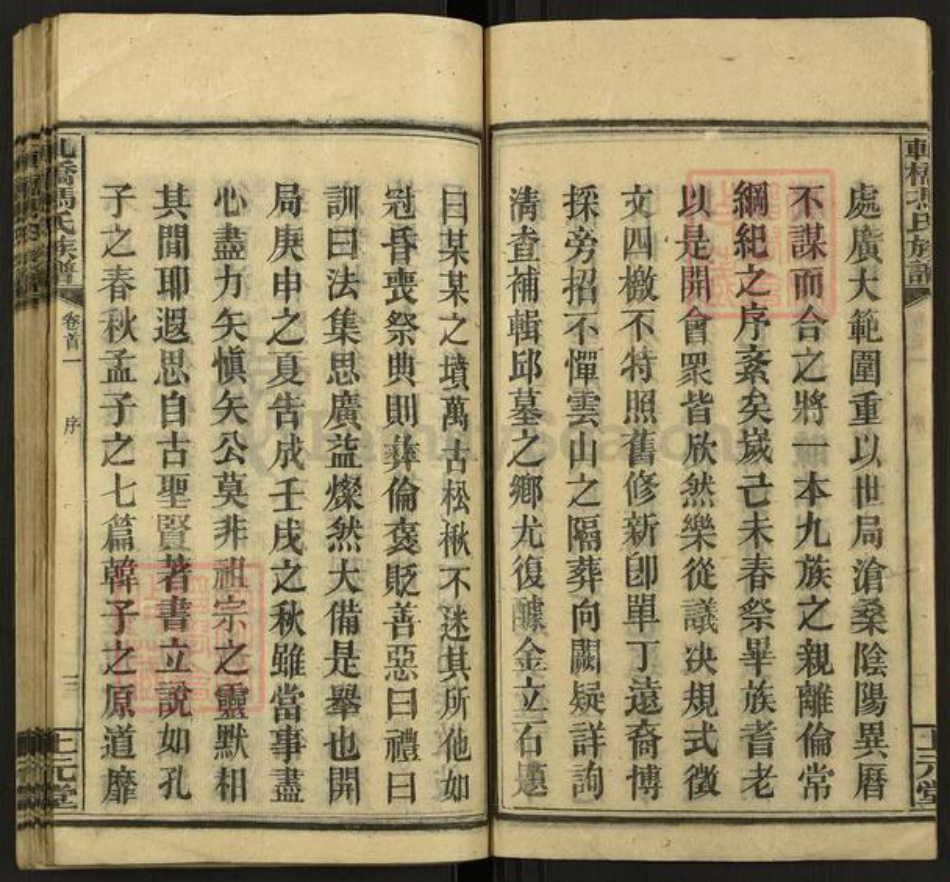 處廣大範圍重以世局滄桑陰陽異曆
不謀而合之將一本九族之親離倫常
綱紀之序紊矣歲己未春祭畢族耆老
以是開會眾皆欣然樂從議決規式徵
文四檄不特照舊修新卽單丁遠裔博
採旁招不憚雲山之隔葬向闕疑詳詢
清查補輯邱墓之鄉尤復醵金立石題
曰某某之墳萬古松楸不迷其所他如
冠昏喪祭典則彝倫褒貶善惡曰禮曰
訓曰法集思廣益燦然大備是舉也開
局庚申之夏告成壬戌之秋雖當事盡
心盡力矢慎矢公莫非祖宗之靈默相
其間耶遐思自古聖賢著書立說如孔
子之春秋孟子之七篇韓子之原道靡
橋馬氏族譜
卷首一
序